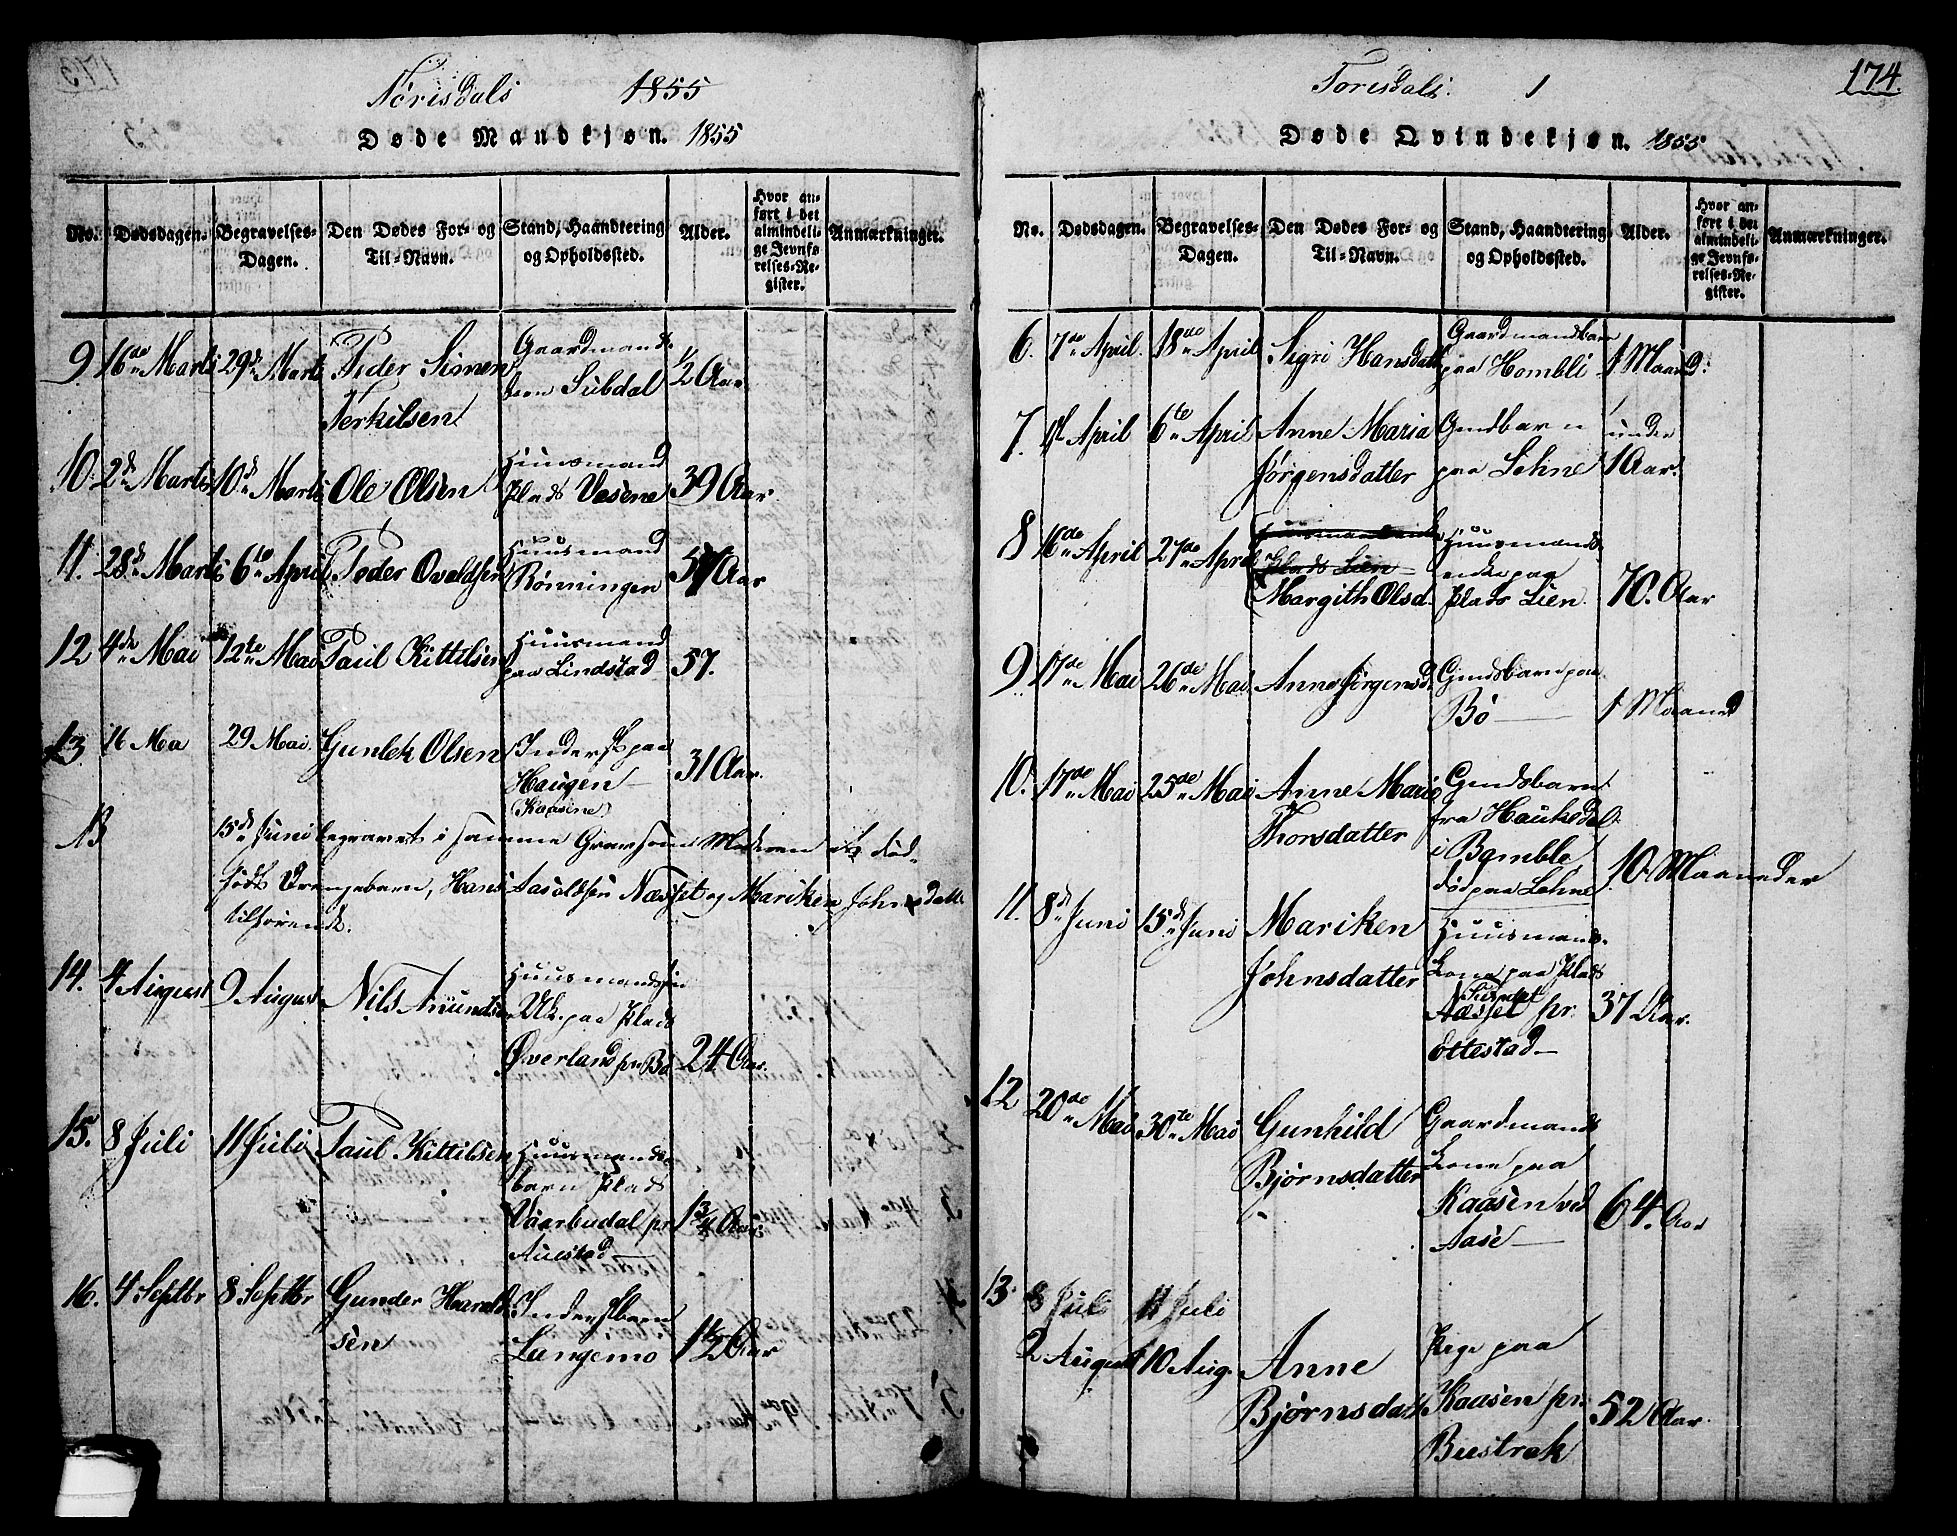 Torisdals 1855
Døde Mandkjøn. 1855
No. Dødsdagen. Begravelses-Dagen. Den Dødes For- og Til-Navn. Stand, Haandtering og Opholdssted. Alder. Hvor anført i det almindelige Jevnførelses-Register. Anmærkninger.
9. 16de Marts 29de Marts Peder Simen Gaardmands
Terkilsen Subdal 1/2 Aar
10. 2de Marts 10de Marts Ole Olsen Huusmand
Plads Vasene 39 Aar
11. 28de Marts 6te April Peder Huusmand
Rønningen 57 Aar
12 4de Mai 12te Mai Paul Kittilsen Huusmand
paa Lindstad 57.
13 16 Mai 29 Mai Gunlek Olsen Inderst paa
Haugen 31 Aar.
(Kaasene)
13 15de Juni begravet i samme Grav som Moderen et død-
født Drengebarn, Hans Aasoldsen Næsset og Mariken Johnsdatter
tilhørende.
14. 4 August 9 August Nils Amundsen Huusmandssøn
paa Plads
Øverland pr Bø 24 Aar.
15. 8 Juli 11 Juli Paul Kittilsen Huusmands-
barn Plads
Vaarbudal pr 1 3/4 Aar
Auestad
16. 4 Septbr 8 Septbr Gunder Harald- Inderstbarn
sen Langemo 1 1/2 Aar
174.
Torisdals 1
Døde Qvindekjøn. 1855
No. Dødsdagen. Begravelses-Dagen. Den Dødes For- og Til-Navn. Stand, Haandtering og Opholdssted. Alder. Hvor anført i det almindelige Jevnførelses-Register. Anmærkninger.
6. 7de April. 18de April Sigri Hansdatt Gaardmandsbarn
paa Hombli 1 Maaned.
7. April 6te April Anne Maria under
Jørgensdatter paa Lohne 1 Aar.
8 16de April 27de April Huusmands
Plads Lien enke paa
Margith Olsd. Plads Lien. 70. Aar
9 17de Mai 26de Mai Anne Jørgensd. paa
Bø 1 Maaned
10. 17de Mai 25de Mai Anne Marie
Thorsdatter fra Haukedal
i Bamble
død paa Lohne 10 Maaneder
11. 8de Juni 15de Juni Mariken Huusmands-
Johnsdatter Kone paa Plads
Næsset pr. 37 Aar.
Ettestad
12 20de Mai 30te Mai Gunhild Gaardmands
Bjørnsdatter Kone paa
Kaasen ved 64. Aar
Aase
13. 8 Juli 11 Juli
2 August 10 Aug. Anne Pige paa
Bjørnsdatt Kaasen pr. 52 Aar.
Bustrak